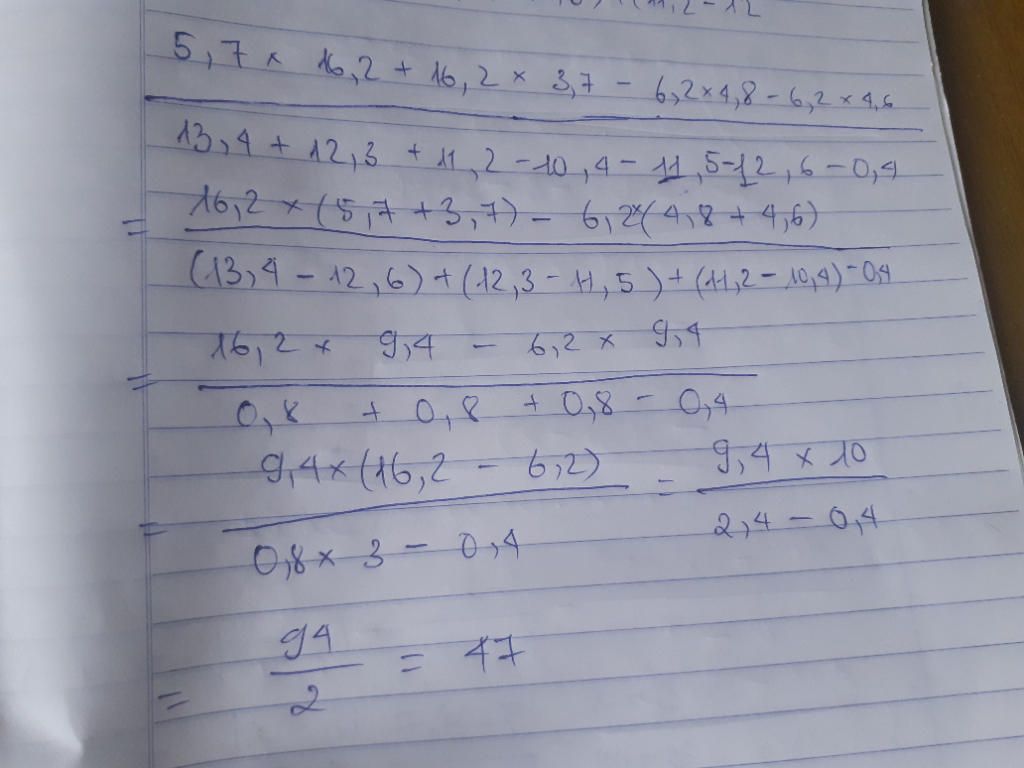 (11,2-12
5,7 × 16,2 + 16,2 × 3,7 - 6,2 × 4,8 - 6,2 × 4,6
13,4 + 12,3 + 11,2 - 10,4 - 11,5 - 12,6 - 0,4
= 16,2 × (5,7 + 3,7) - 6,2 × (4,8 + 4,6)
(13,4 - 12,6) + (12,3 - 11,5) + (11,2 - 10,4) - 0,4
= 16,2 × 9,4 - 6,2 × 9,4
0,8 + 0,8 + 0,8 - 0,4
= 9,4 × (16,2 - 6,2) = 9,4 × 10
0,8 × 3 - 0,4 2,4 - 0,4
= 94 = 47
2